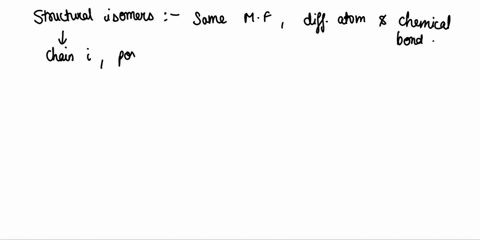 Structural isomers :- Same M.F, diff. atom & chemical
bond.
↓
Chain i, por